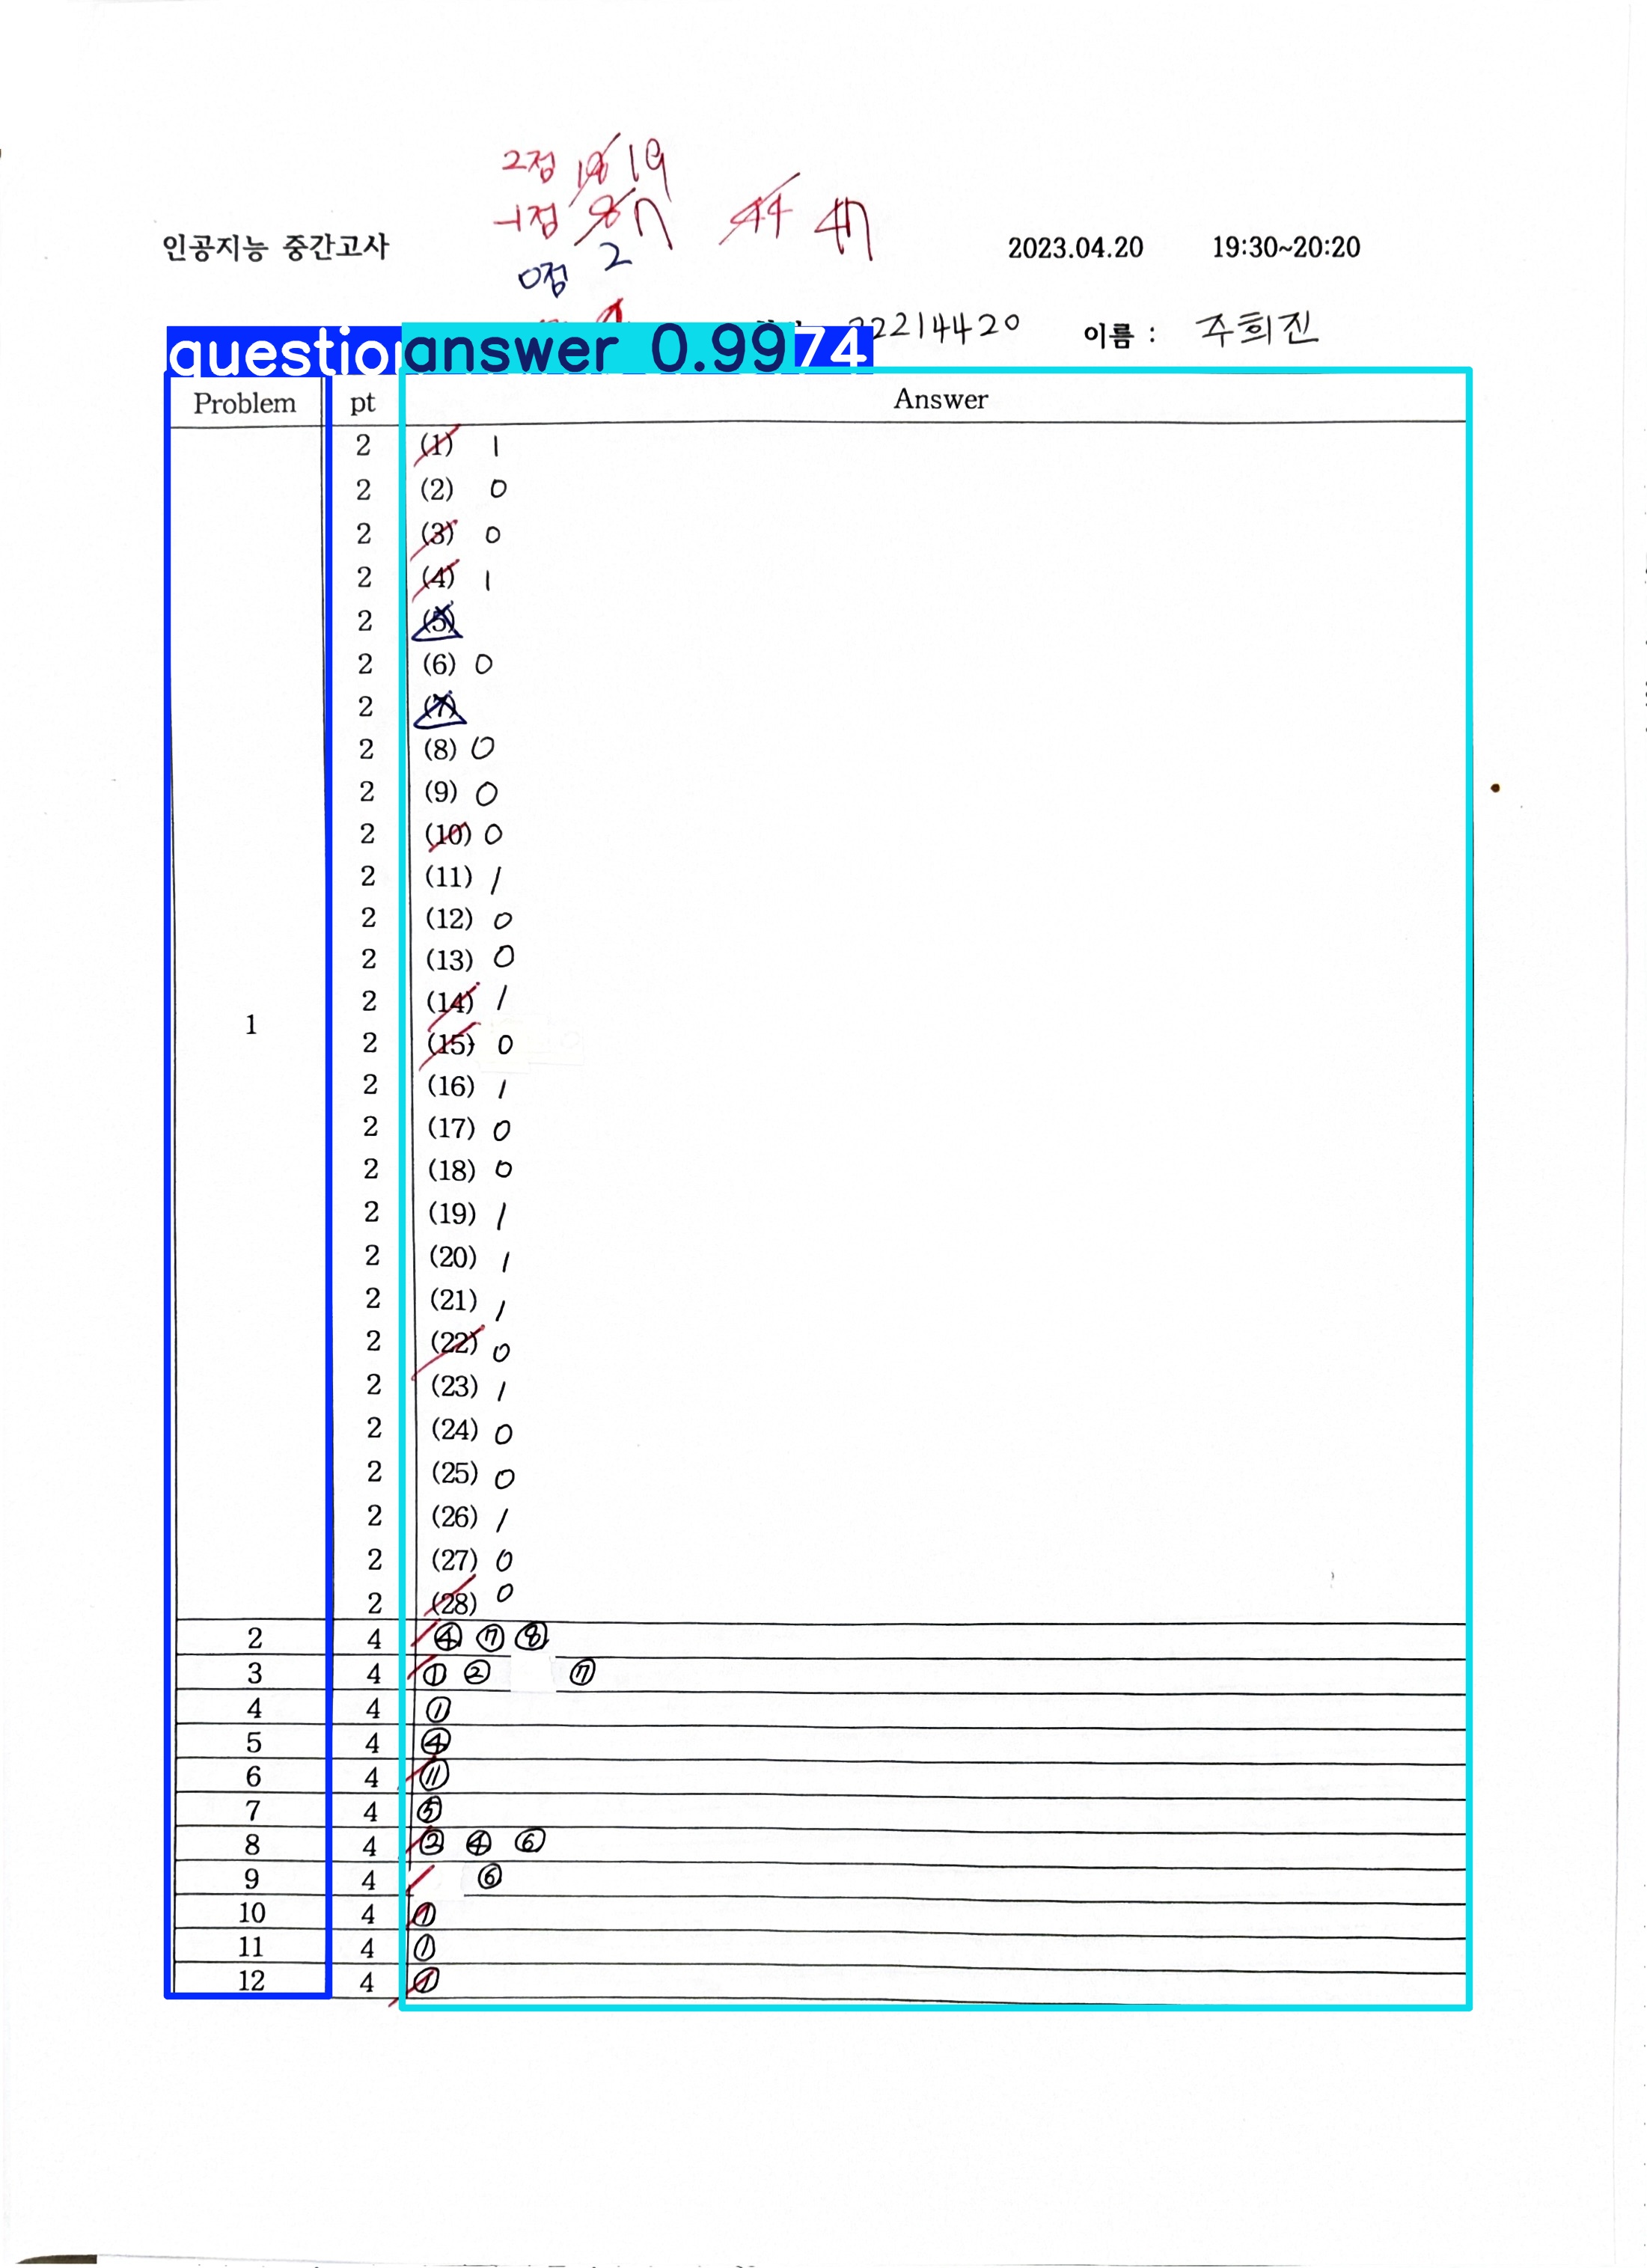 2점 18 19
-1점 8 7 44 47
인공지능 중간고사 2023.04.20 19:30~20:20
0점 2
22214420 이름 : 주희진
questio answer 0.99 74
Problem pt Answer
2 (1) 1
2 (2) 0
2 (3) 0
2 (4) 1
2 (5)
2 (6) 0
2 (7)
2 (8) 0
2 (9) 0
2 (10) 0
2 (11) 1
2 (12) 0
2 (13) 0
2 (14) 1
1
2 (15) 0
2 (16) 1
2 (17) 0
2 (18) 0
2 (19) 1
2 (20) 1
2 (21) 1
2 (22) 0
2 (23) 1
2 (24) 0
2 (25) 0
2 (26) 1
2 (27) 0
2 (28) 0
2 4 ④ ⑦ ⑧
3 4 ① ② ⑦
4 4 ①
5 4 ④
6 4 ⑪
7 4 ⑤
8 4 ② ④ ⑥
9 4 ⑥
10 4 ①
11 4 ①
12 4 ①